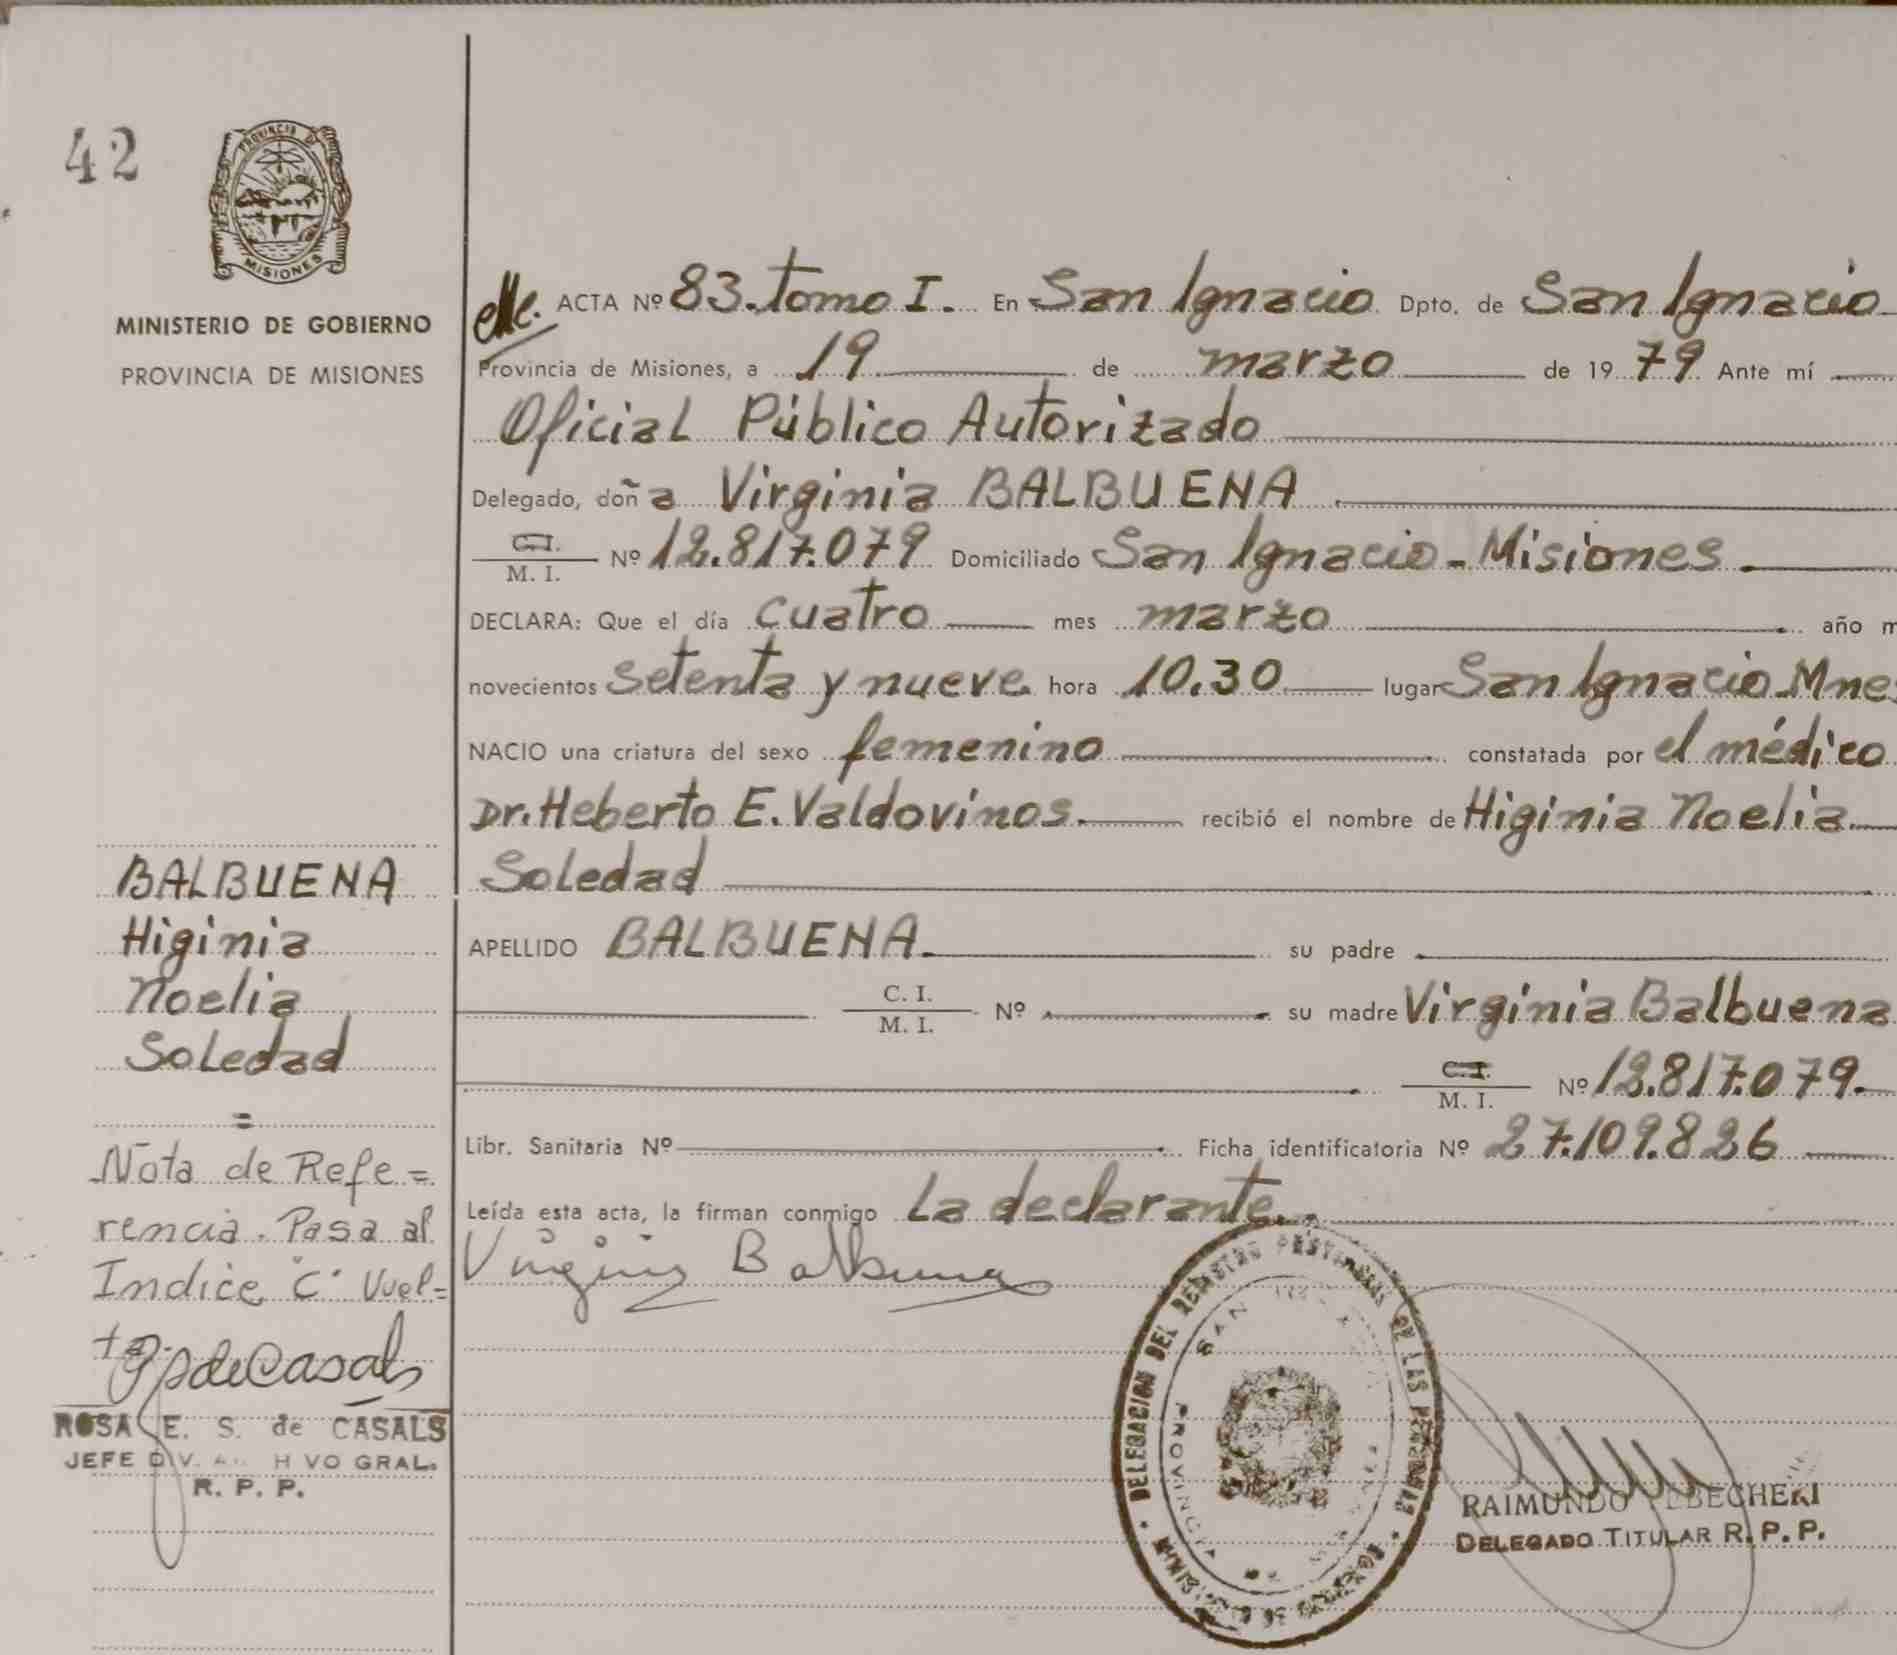 42
PROVINCIA DE
MISIONES
MINISTERIO DE GOBIERNO
PROVINCIA DE MISIONES
ACTA Nº 83. tomo I. En San Ignacio Dpto. de San Ignacio
Provincia de Misiones, a 19 de marzo de 19 79 Ante mí
Oficial Público Autorizado
Delegado, doña Virginia BALBUENA
C.I.
M. I. Nº 12.817.079 Domiciliado San Ignacio - Misiones
DECLARA: Que el día cuatro mes marzo año m
novecientos setenta y nueve hora 10.30 lugar San Ignacio - Mnes
NACIO una criatura del sexo femenino constatada por el médico
Dr. Heberto E. Valdovinos. recibió el nombre de Higinia Noelia
Soledad
APELLIDO BALBUENA. su padre
C. I.
M. I. Nº su madre Virginia Balbuena
C. I.
M. I. Nº 12.817.079.
Libr. Sanitaria Nº Ficha identificatoria Nº 27.109.826
Leída esta acta, la firman conmigo La declarante.
Virginia Balbuena
BALBUENA
Higinia
Noelia
Soledad
=
Nota de Refe=
rencia. Pasa al
Indice "C" Vuel=
ta.
RdeCasals
ROSA E. S. de CASALS
JEFE DIV. HVO GRAL.
R. P. P.
DELEGACION DEL REGISTRO PROVINCIAL DE LAS PERSONAS
SAN
PROVINCIA
RAIMUNDO
DELEGADO TITULAR R. P. P.